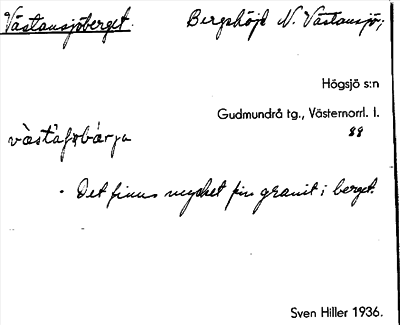 Västansjöberget. Bergshöjd N. Västansjö;
Högsjö s:n
Gudmundrå tg., Västernorrl. l.
88
Det finns mycket fin granit i berget.
Sven Hiller 1936.